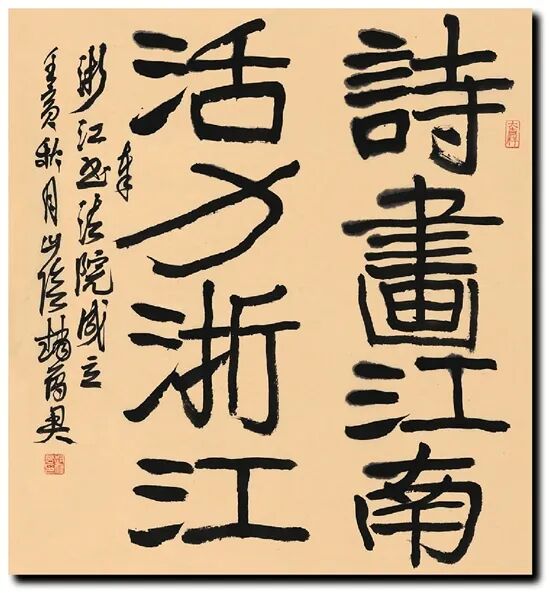 詩畫江南
活力浙江
浙江书法院成立
壬寅秋月山陰趙雁君